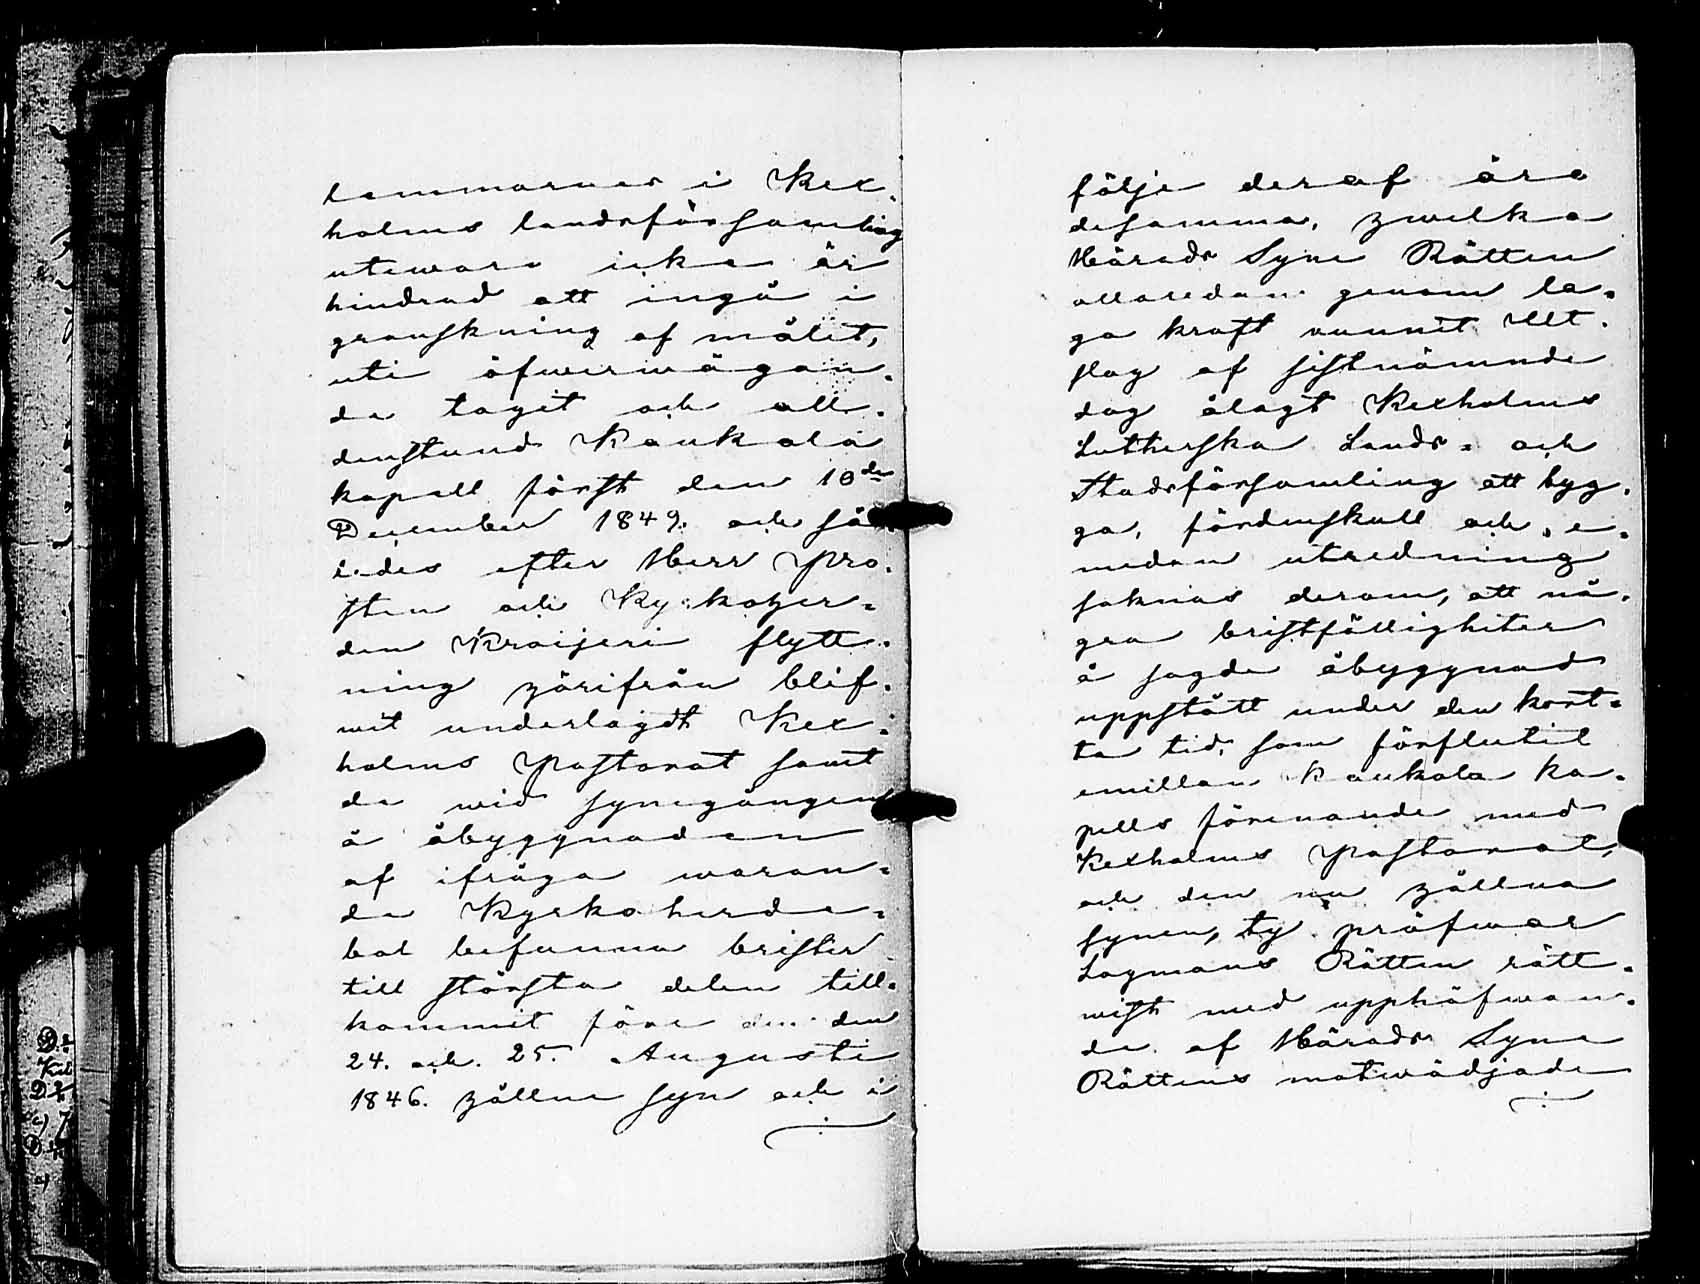 lemmarnes i Kex-
holms landsförsamling
utewaro icke är
hindrad att ingå i
granskning af målet,
uti öfwerwägan-
de tagit och all-
denstund Kaukola
kapell först den 10de
December 1849. och så
ledes efter Herr Pro-
sten och Kyrkoher-
den Kraijeri flytt-
ning härifrån blif-
wit underlagdt Kex-
holms Pastorat samt
de wid synegången
å åbyggnaden
af ifråga waran-
de Kyrkoherde-
bol befunna brister
till största delen till-
kommit före den den
24. och 25. Augusti
1846. hållne syn och i
följe deraf äro
desamma, hwilka
Härads Syne Rätten
allaredan genom la-
ga kraft vunnit Ut-
slag af sistnämnde
dag ålagt Kexholms
Lutherska Lands- och
Stadsförsamling att byg-
ga, fördenskull och, e-
medan utredning
saknas derom, att nå-
gra bristfälligheter
å sagde åbyggnad
uppstått under den kort-
ta tid, som förflutit
emillan Kaukola ka-
pells förenande med
Kexholms Pastorat,
och den nu hållna
synen, ty pröfwar
Lagmans Rätten rätt-
wist med upphäfwan-
de af Härads Syne
Rättens motwädjade